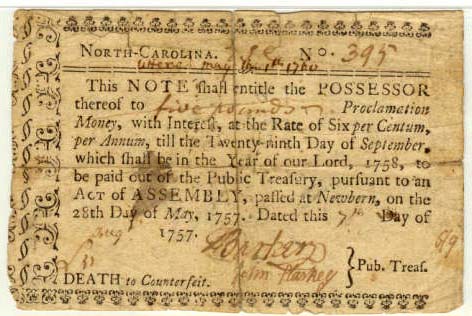 NORTH-CAROLINA. No. 395
may the 1st 1760
This NOTE shall entitle the POSSESSOR
thereof to five pounds Proclamation
Money, with Interest, at the Rate of Six per Centum,
per Annum, till the Twenty-ninth Day of September,
which shall be in the Year of our Lord, 1758, to
be paid out of the Public Treasury, pursuant to an
Act of ASSEMBLY, passed at Newbern, on the
28th Day of May, 1757. Dated this 7th Day of
Aug 1757.
} Pub. Treas.
DEATH to Counterfeit.